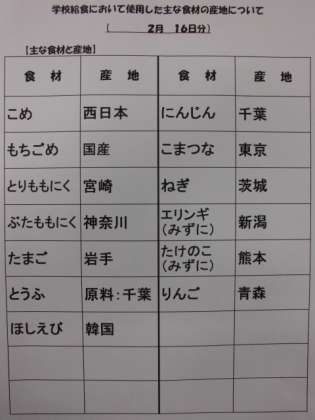 学校給食において使用した主な食材の産地について
(　　2月　16日分)
【主な食材と産地】
食 材　産 地　食 材　産 地
こめ　西日本　にんじん　千葉
もちごめ　国産　こまつな　東京
とりももにく　宮崎　ねぎ　茨城
ぶたももにく　神奈川　エリンギ　新潟
(みずに)
たまご　岩手　たけのこ　熊本
(みずに)
とうふ　原料：千葉　りんご　青森
ほしえび　韓国